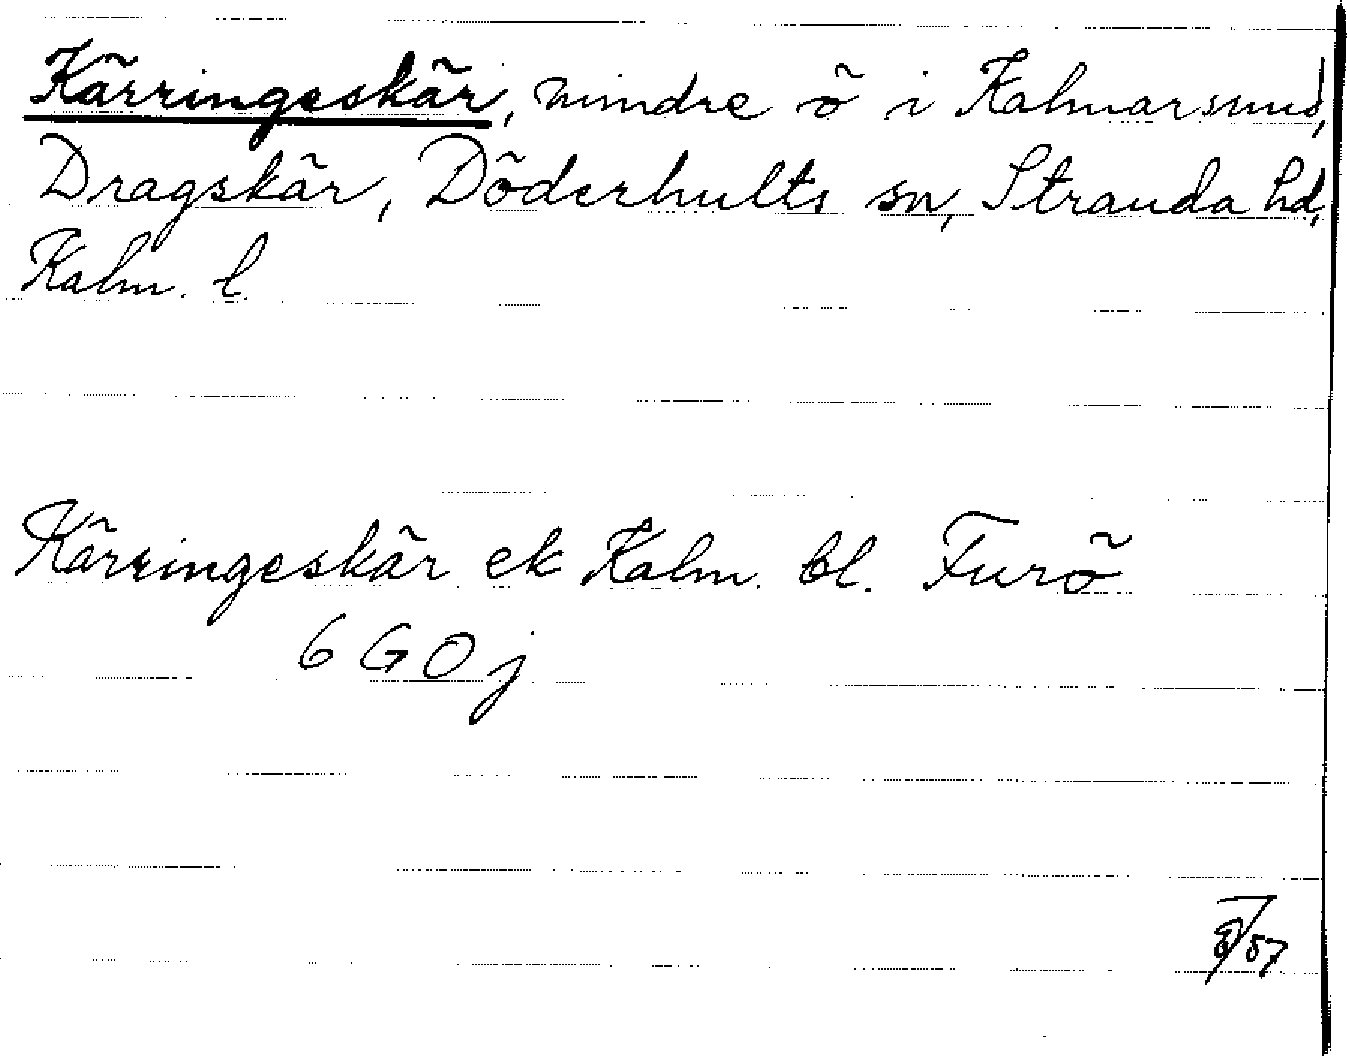 Kärringeskär, mindre ö i Kalmarsund,
Dragskär, Döderhults sn, Stranda hd,
Kalm. l
Kärringeskär ek Kalm. bl. Furö
6 G 0 j